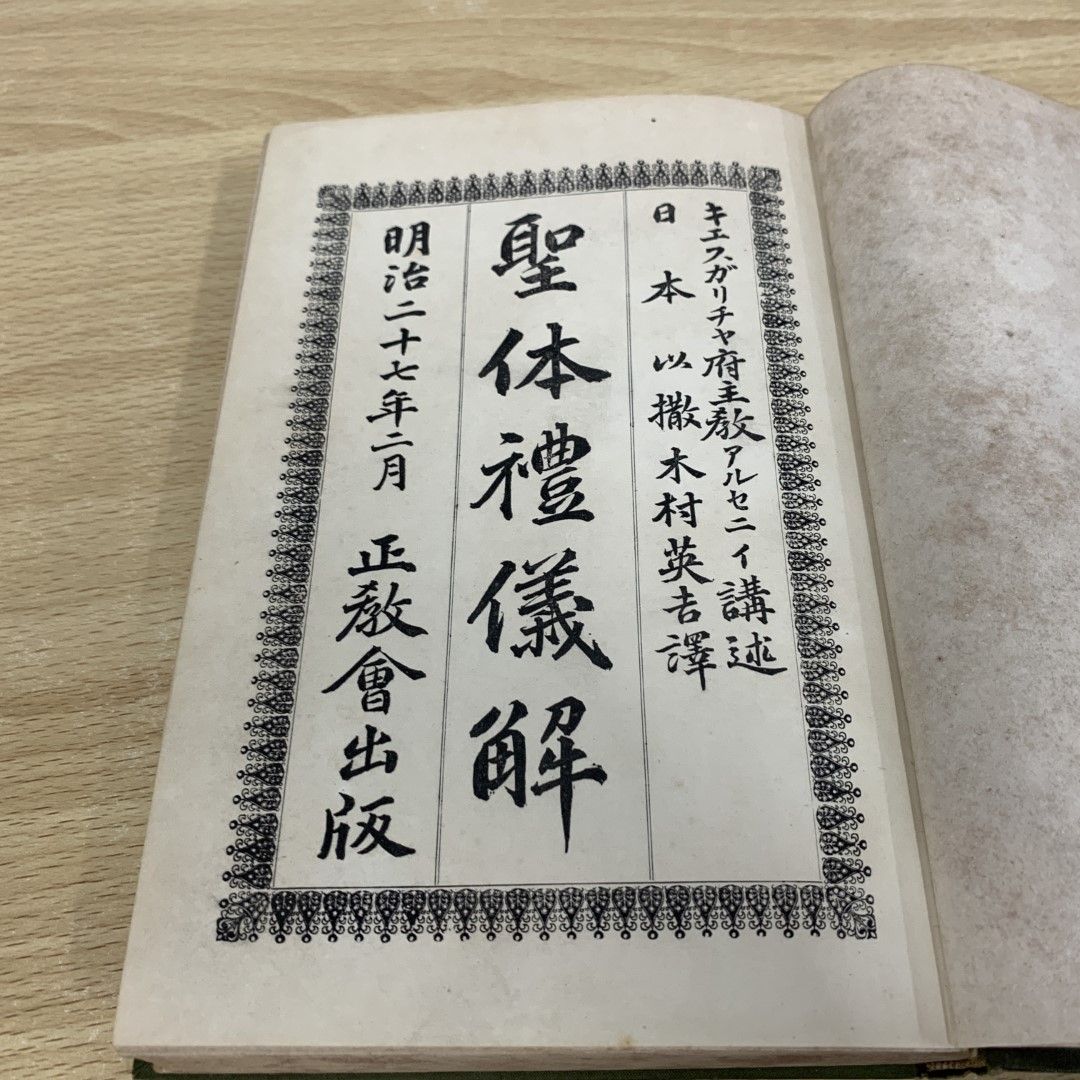 キエスガリチヤ府主教アルセニイ講述
日本 以撒木村英吉譯
聖体禮儀解
明治二十七年二月 正教會出版